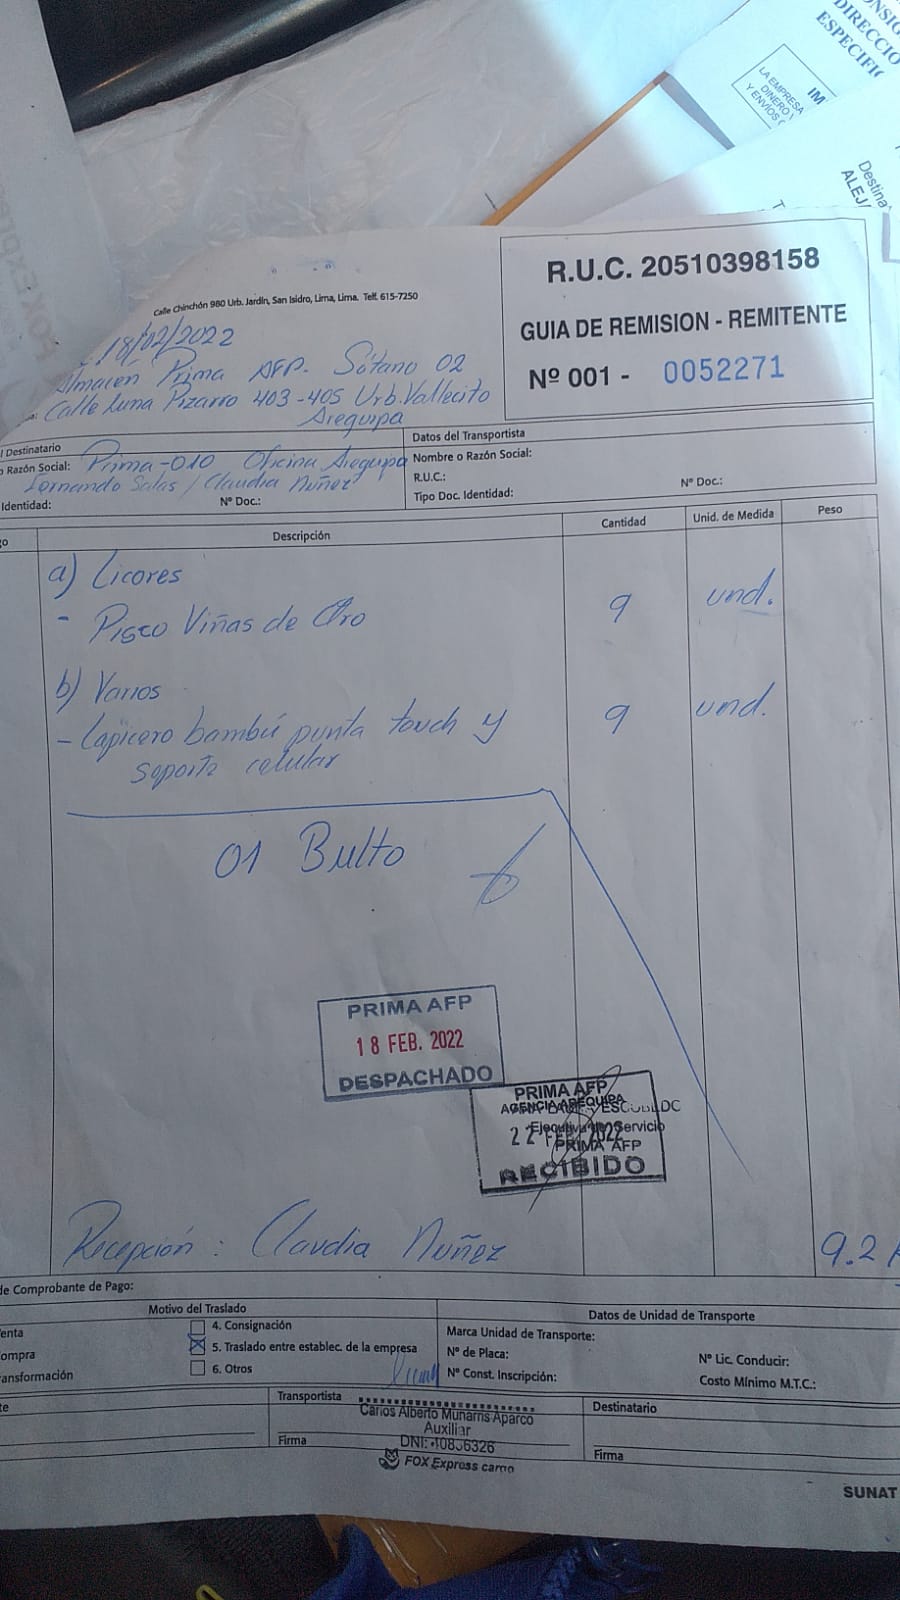 CONSIG
DIRECCIÓ
ESPECIFIC
IM
LA EMPRESA
DINERO
Y ENVÍOS
Destina
ALEJ
R.U.C. 20510398158
GUIA DE REMISION - REMITENTE
Nº 001 - 0052271
Calle Chinchón 980 Urb. Jardín, San Isidro, Lima, Lima. Telf. 615-7250
18/02/2022
Almacén Prima AFP. Sótano 02
Calle Luna Pizarro 403-405 Urb. Vallecito
Arequipa
l Destinatario
o Razón Social: Prima-010 Oficina Arequipa
Fernando Salas / Claudia Nuñez
Identidad: Nº Doc.:
Datos del Transportista
Nombre o Razón Social:
R.U.C.:
Tipo Doc. Identidad: Nº Doc.:
go Descripción Cantidad Unid. de Medida Peso
a) Licores
- Pisco Viñas de Oro 9 und.
b) Varios
- Lapicero bambú punta touch y 9 und.
soporte celular
01 Bulto
PRIMA AFP
18 FEB. 2022
DESPACHADO
PRIMA AFP
AGENCIA AREQUIPA
ESCOBEDO
22 FEB 2022
Ejecutiva de Servicio
PRIMA AFP
RECIBIDO
Recepción: Claudia Nuñez 9.2 K
de Comprobante de Pago:
Motivo del Traslado
enta
ompra
ansformación
4. Consignación
5. Traslado entre establec. de la empresa
6. Otros
Datos de Unidad de Transporte
Marca Unidad de Transporte:
Nº de Placa: Nº Lic. Conducir:
Nº Const. Inscripción: Costo Mínimo M.T.C.:
te
Transportista
Carlos Alberto Munarris Aparco
Auxiliar
DNI: 40856326
Firma
FOX Express cargo
Destinatario
Firma
SUNAT